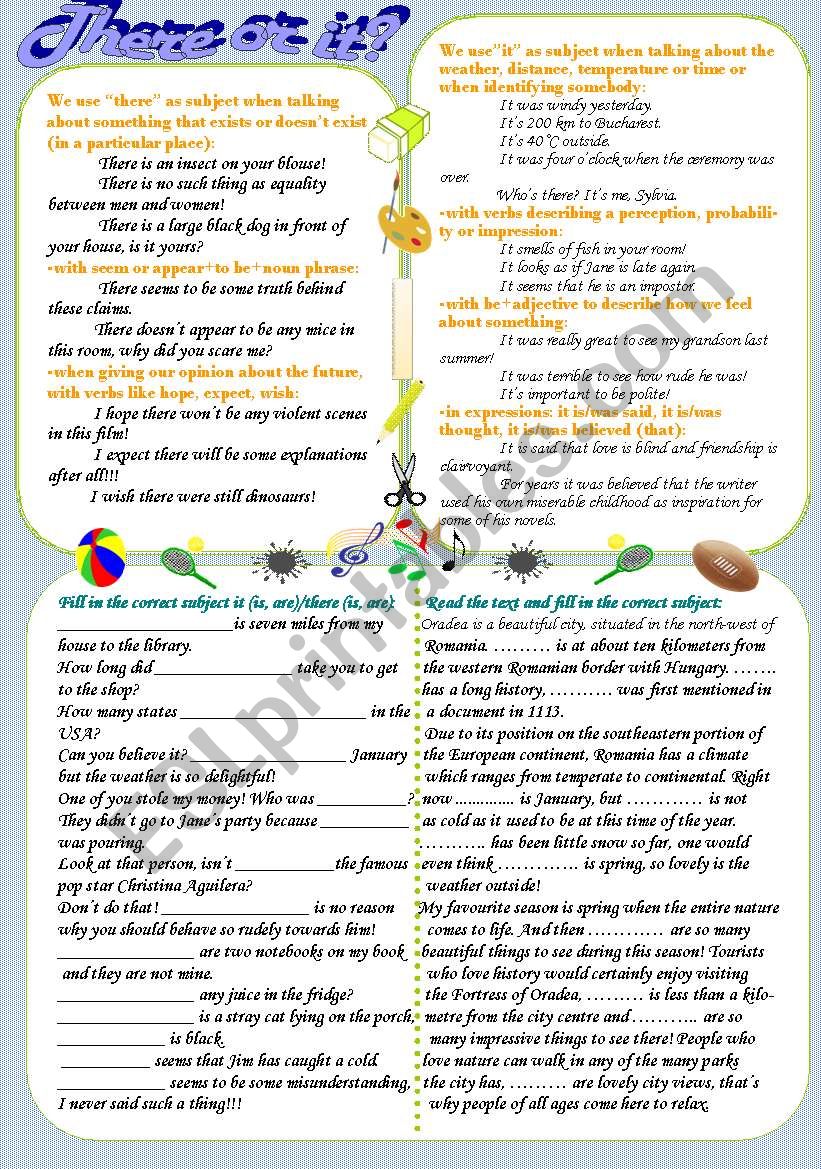 There or it?
We use “there” as subject when talking
about something that exists or doesn't exist
(in a particular place):
There is an insect on your blouse!
There is no such thing as equality
between men and women!
There is a large black dog in front of
your house, is it yours?
-with seem or appear+to be+noun phrase:
There seems to be some truth behind
these claims.
There doesn't appear to be any mice in
this room, why did you scare me?
-when giving our opinion about the future,
with verbs like hope, expect, wish:
I hope there won't be any violent scenes
in this film!
I expect there will be some explanations
after all!!!
I wish there were still dinosaurs!
We use”it” as subject when talking about the
weather, distance, temperature or time or
when identifying somebody:
It was windy yesterday.
It's 200 km to Bucharest.
It's 40°C outside.
It was four o'clock when the ceremony was
over.
Who's there? It's me, Sylvia.
-with verbs describing a perception, probabili-
ty or impression:
It smells of fish in your room!
It looks as if Jane is late again
It seems that he is an impostor.
-with be+adjective to describe how we feel
about something:
It was really great to see my grandson last
summer!
It was terrible to see how rude he was!
It's important to be polite!
-in expressions: it is/was said, it is/was
thought, it is/was believed (that):
It is said that love is blind and friendship is
clairvoyant.
For years it was believed that the writer
used his own miserable childhood as inspiration for
some of his novels.
Fill in the correct subject it (is, are)/there (is, are):
____________________is seven miles from my
house to the library.
How long did________________ take you to get
to the shop?
How many states _____________________ in the
USA?
Can you believe it? __________________ January
but the weather is so delightful!
One of you stole my money! Who was __________?
They didn't go to Jane's party because __________
was pouring.
Look at that person, isn't ___________the famous
pop star Christina Aguilera?
Don't do that! _________________ is no reason
why you should behave so rudely towards him!
________________ are two notebooks on my book
and they are not mine.
________________ any juice in the fridge?
________________ is a stray cat lying on the porch,
____________ is black
__________ seems that Jim has caught a cold.
____________ seems to be some misunderstanding,
I never said such a thing!!!
Read the text and fill in the correct subject:
Oradea is a beautiful city, situated in the north-west of
Romania. ……… is at about ten kilometers from
the western Romanian border with Hungary. …….
has a long history, ………. was first mentioned in
a document in 1113.
Due to its position on the southeastern portion of
the European continent, Romania has a climate
which ranges from temperate to continental. Right
now .............. is January, but ………… is not
as cold as it used to be at this time of the year.
……….. has been little snow so far, one would
even think …………. is spring, so lovely is the
weather outside!
My favourite season is spring when the entire nature
comes to life. And then ………… are so many
beautiful things to see during this season! Tourists
who love history would certainly enjoy visiting
the Fortress of Oradea, ……… is less than a kilo-
metre from the city centre and ……….. are so
many impressive things to see there! People who
love nature can walk in any of the many parks
the city has, ……… are lovely city views, that's
why people of all ages come here to relax.
ESLprintables.com